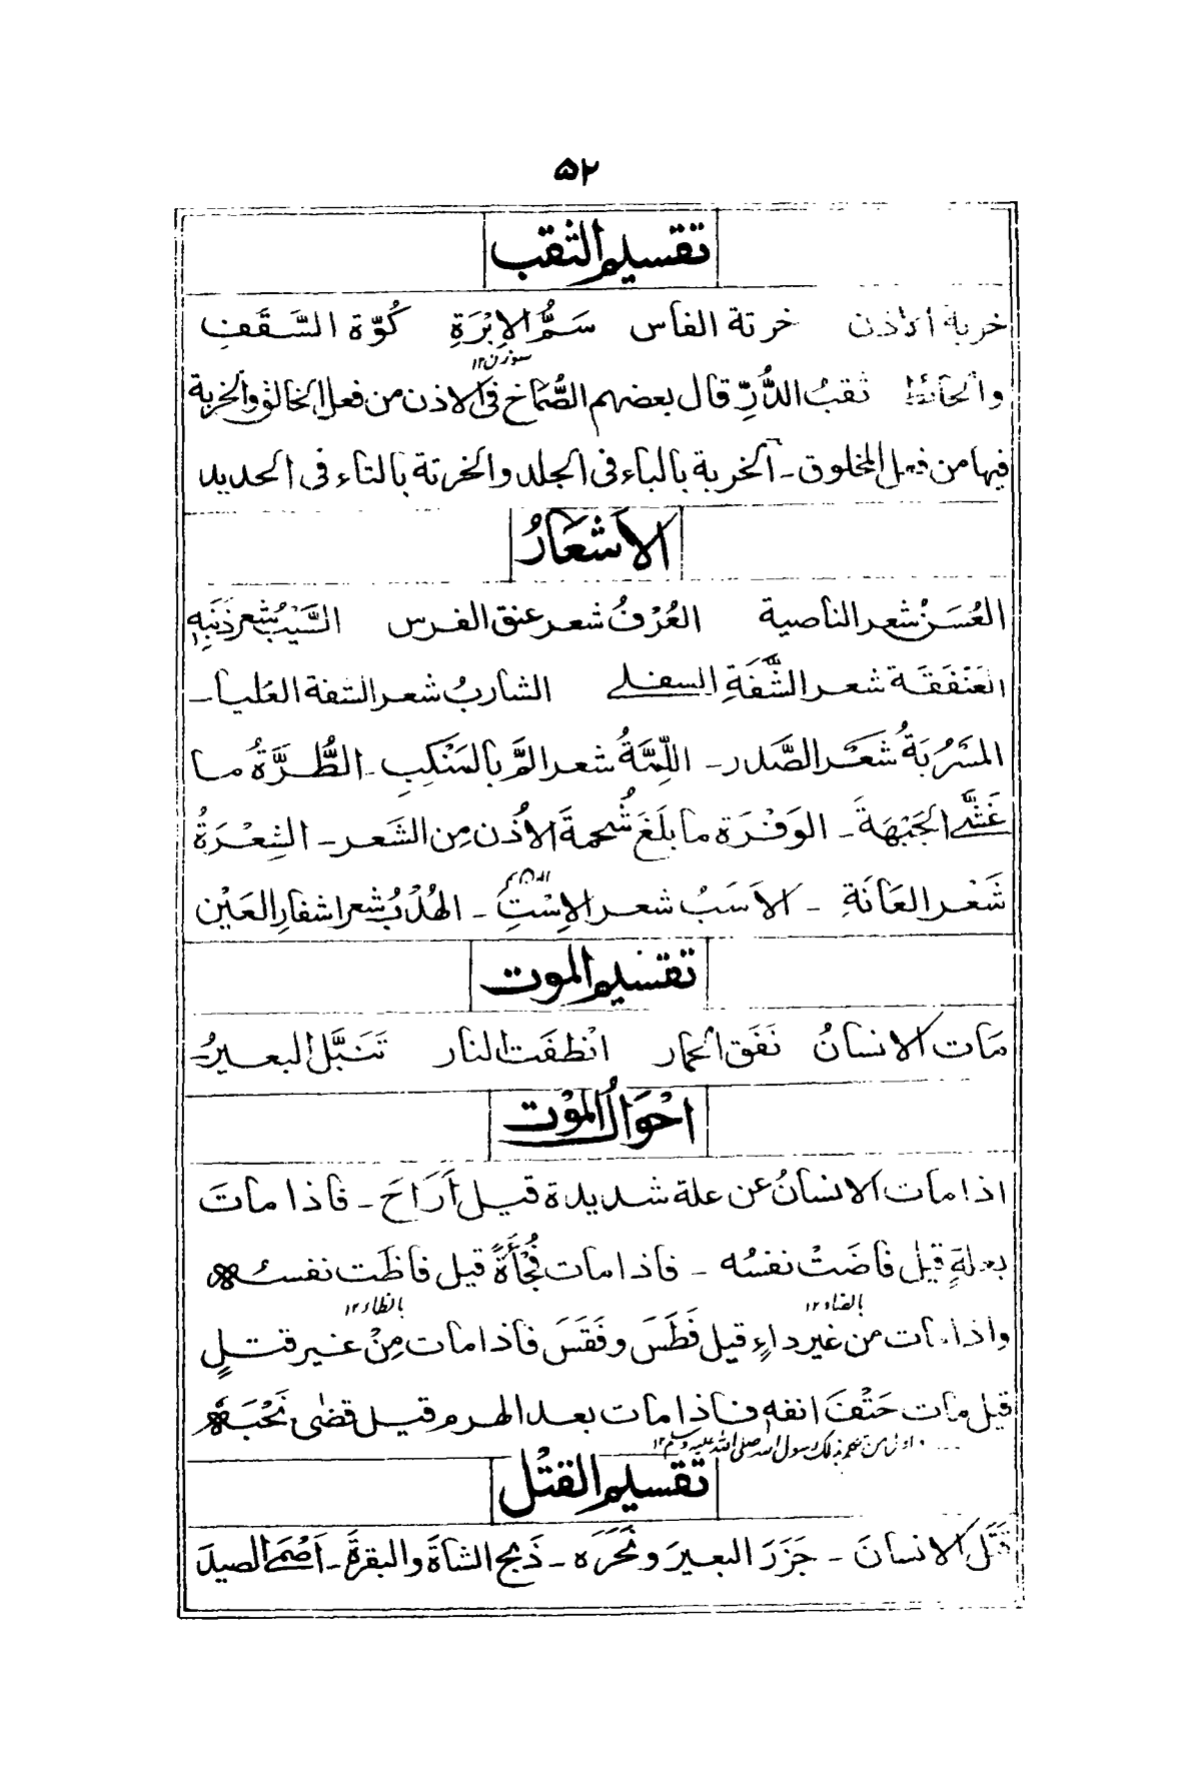 ۵۲
تقسیم الثقب
خربة الاذن خرتة الفاس سَمُّ الإبْرَةِ كُوّة السَّقَفِ
سوزن ۱۲
والحائط ثقبُ الدُّرِّ قال بعضهم الصُّمَاخ فی الاذن من فعل الخالق والخربة
فیها من فعل المخلوق ـ الخربة بالباء فی الجلد والخرتة بالتاء فی الحدید
الأشْعَارُ
العُسَنُ شعر الناصیة العُرْفُ شعر عنق الفرس السَّیْبُ شعر ذَنَبِه
العَنْفَقَة شعر الشَّفَةِ السفلے الشاربُ شعر الشفة العَلیا ـ
المَسْرُبَةُ شَعَر الصَّدر ـ اللِّمَّةُ شعر المَّ بالمَنْکِبِ ـ الطُّرَّةُ ما
غَشَّے الجَبْهَةَ ـ الوَفْرَة ما بلَغَ شُحمةَ الأُذن مِن الشَعر ـ الشِعْرَةُ
شَعْر العَانَةِ ـ الأسَبُ شعر الإسْتِ ـ الهُدْبُ شعر اشفارِ العَیْن
تقسیم الموت
مَات الانسانُ نَفَق الحمار انْطفَت النار تَنَبَّل البعیرُ
احْوَالُ الموْت
اذا مات الانسانُ عن علة شدیدة قیل أرَاحَ ـ فاذا ماتَ
بعلةٍ قیل فاضَتْ نفسُه ـ فاذا مات فُجْأَةً قیل فاظَت نفسُه
بالضاد ۱۲ بالظاء ۱۲
واذا مات من غیر داءٍ قیل فَطَسَ وفَقَسَ فاذا مات مِنْ غیر قتلٍ
قیل مات حَتْفَ انفه فاذا مات بعد الهرم قیل قضٰی نَحْبَه
من تکلم بذلک رسول الله صلی الله علیه وسلم ۱۲
تقسیم القتْل
قَتَل الانسانَ ـ جَزَرَ البعیرَ ونَحَرَه ـ ذَبح الشاةَ والبقرةَ ـ اَصْمَے الصیدَ